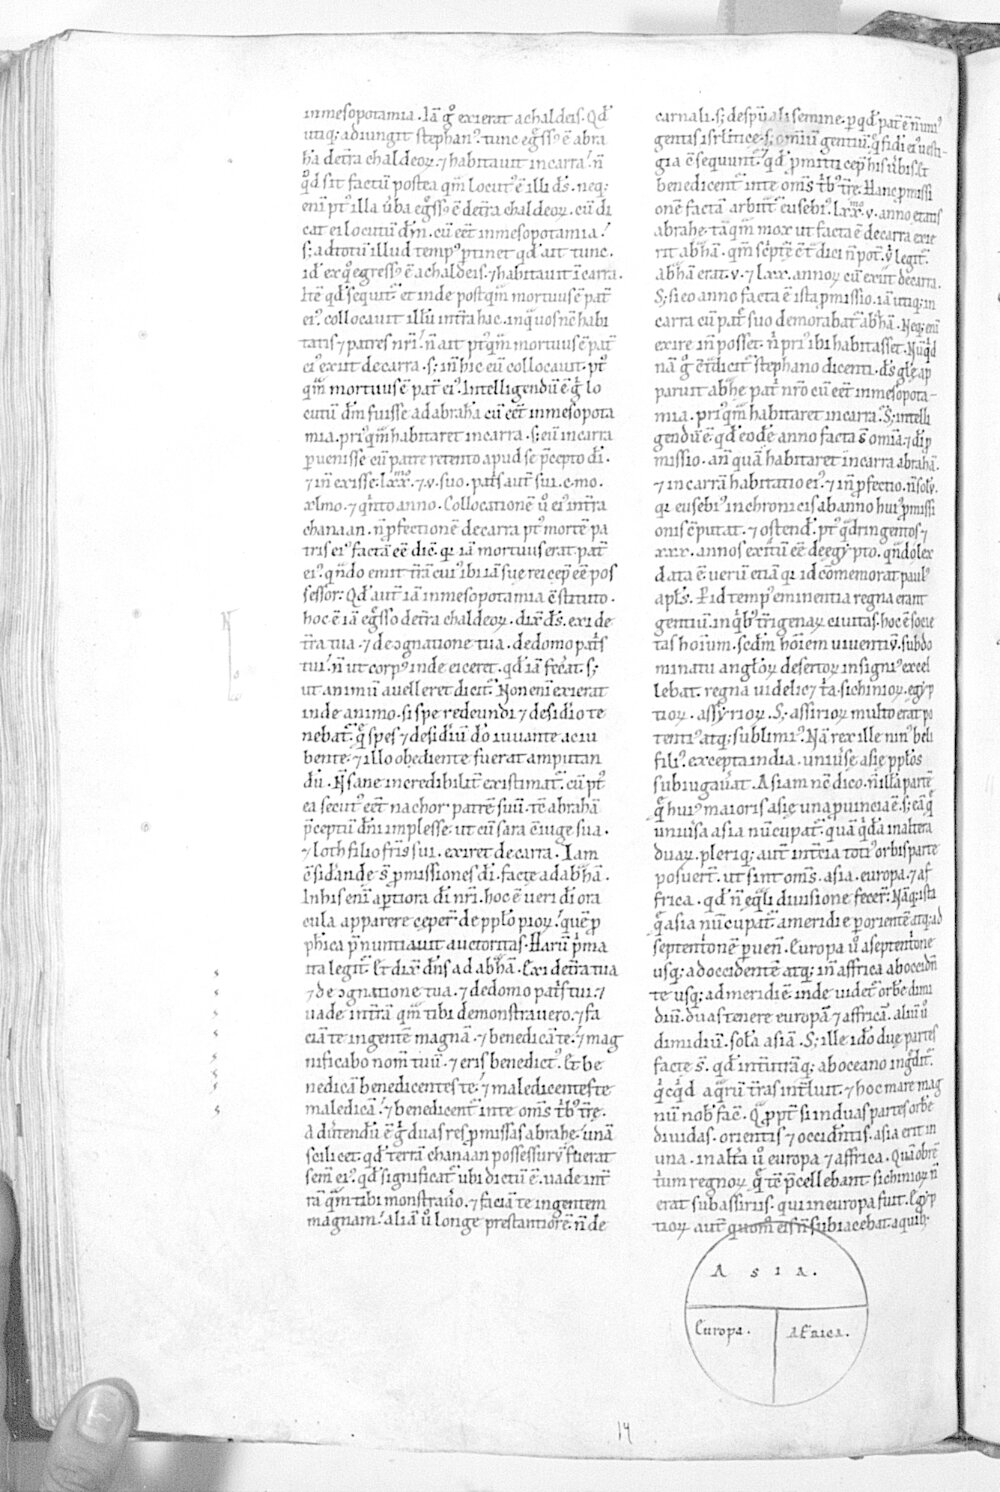 in mesopotamia. Iā g̊ exierat a chaldeis. Qd̄
utiq; adiungit stephan᷒. tunc eg̅ss᷒ ē abra
hā de t̄ra chaldeoꝝ. ⁊ habitavit in carra. n̄
qd̄ sit factū postea qm̄ locut᷒ ē illi d̄s. neq;
eni pt᷒ illa v̄ba eg̅ss᷒ ē de t̄ra chaldeoꝝ. cū di
cat ei locutū dm̄. cū eēt in mesopotamia.
s; ad totū illud temp᷒ ptinet qd̄ ait tunc.
id ex q̊ egress᷒ ē a chaldeis. ⁊ habitavit ī carra.
Itē qd̄ sequit᷒. et inde postqm̄ mortuus ē pat̄
ei᷒. collocavit illū in t̄ra hac. in qua vos nc̄ habi
tatis ⁊ patres nr̄i. n̄ ait ptqm̄ mortuus ē pat̄
ei᷒ exiit de carra. s; in hic eū collocavit. pt᷒
qm̄ mortuus ē pat̄ ei᷒. Intelligendū ē g̊ lo
cutū dm̄ fuisse ad abrahā cū eēt in mesopota
mia. pri᷒qm̄ habitaret in carra. s; eū in carra
p̱venisse cū patre retento apud se p̄cepto di.
⁊ in exisse. lxx̊. ⁊ v. suo. pat̄s aut̄ sui. c. mo.
xlmo. ⁊ qnto anno. Collocationē v̊ ei᷒ in t̄ra
chanaan. n̄ pfectionē de carra pt᷒ mortē pa
tris ei᷒ factā eē dic̄. q̨ iā mortuus erat pat̄
ei᷒. qn̄do emit t̄rā cui᷒ ibi iā sue rei cep̄ eē pos
sessor. Qd̄ aut̄ iā in mesopotamia ēstituto.
hoc ē iā eg̅sso de t̄ra chaldeoꝝ. dix̄ d̄s. exi de
t̄ra tua. ⁊ de ɔgnatione tua. ⁊ de domo pat̄s
tui. n̄ ut corp᷒ inde eiceret. qd̄ iā fec̄at. s;
ut animū avelleret dicit᷒. Non eni exierat
inde animo. si spe redeundi ⁊ desidio te
nebat᷒. q̄ spes ⁊ desidiū do iuvante ac iu
bente. ⁊ illo obediente fuerat amputan
dū. N̄ sane incredibilit̄ existimat᷒. cū pt᷒
ea secut᷒ eēt nachor patrē suū. tē abrahā
p̄ceptū dn̄i implesse. ut cū sara ɔiuge sua.
⁊ loth filio fr̄is sui. exiret de carra. Iam
ɔsidande s̄ pmissiones di. facte ad abhā.
In his eni aptiora di nr̄i. hoc ē veri di ora
cula apparere cep̄er̄ de pplo pioꝝ. quē p
phica p̄nuntiavit auctoritas. Harū pma
ita legit᷒. Et dix̄ dn̄s ad abhā. Exi de t̄ra tua
⁊ de ɔgnatione tua. ⁊ de domo pat̄s tui. ⁊
vade in t̄rā qm̄ tibi demonstravero. ⁊ fa
ciā te in gentē magnā. ⁊ benedicā te. ⁊ mag
nificabo nom̄ tuū. ⁊ eris benedict᷒. Et be
nedicā benedicentes te. ⁊ maledicentes te
maledicā. ⁊ benedicent᷒ in te om̄s t̄b᷒ t̄re.
Adv̄tendū ē g̊ duas res pmissas abrahe. unā
scilicet. qd̄ terrā chanaan possessurū fuerat
sem̄ ei᷒. qd̄ significat᷒ ubi dictū ē. vade in t̄
rā qm̄ tibi monstravo. ⁊ faciā te in gentem
magnam. aliā v̊ longe prestantiorē. n̄ de
carnali. s; de spūali semine. p qd̄ pat̄ ē n̄ uni᷒
gentis isrl̄itice. s; omiū gentiū. q̄ fidi ei᷒ vesti-
gia ɔsequunt᷒. qd̄ pmitti cep̄ his v̄bis. Et
benedicent᷒ in te om̄s t̄b᷒ t̄re. Hanc pmissi
onē factā arbitt᷒ eusebi᷒. lxxmo. v. anno etatis
abrahe. tāqm̄ mox ut facta ē de carra exie
rit abhā. qm̄ sc̄pt̄e ɔt̄dici n̄ pot̄. v̊ legit᷒.
abhā erat. v. ⁊ lxx. annoꝝ cū exiit de carra.
S; si eo anno facta ē ista pmissio. iā utiq; in
carra cū pat̄ suo demorabat᷒ abhā. Neq; eni
exire in posset. n̄ pri᷒ ibi habitasset. Nūqd
nā g̊ ɔt̄dicit᷒ stephano dicenti. d̄s gl̄e ap
paruit abhe pat̄ nr̄o cū eēt in mesopota-
mia. pri᷒qm̄ habitaret in carra. S; intelli
gendū ē. qd̄ eodē anno facta s̄ omia. ⁊ di p
missio. an̄ quā habitaret in carra abrahā.
⁊ in carra habitatio ei᷒. ⁊ in pfectio. n̄ solū.
q̨ eusebi᷒ in chronicis ab anno hui᷒ pmissi
onis ɔputat. ⁊ ostend̄. pt᷒ qdringentos ⁊
xxx. annos exitū eē de egypto. qn̄do lex
data ē. verū etiā q̨ id cōmemorat paul᷒
apls̄. P id temp᷒ eminentia regna erant
gentiū. in qb᷒ t̄rigenaꝝ civitas. hoc ē socie
tas hoīum. scdm̄ hoiem viventiū. sub do
minatu angloꝝ desertoꝝ insigni᷒ excel
lebat. regna videlicꝫ tā. sichinioꝝ. egyp
tioꝝ. assyrioꝝ. S; assirioꝝ multo erat po
tenti᷒ atq; sublimi᷒. Nā rex ille nin᷒ beli
fili᷒. excepta india. univ̄se asie pplos
subiugav̄at. Asiam nc̄ dico. n̄ illā partē
q̄ hui᷒ maioris asie una pvincia ē. s; eā q̄
univ̄sa asia nūcupat᷒. quā qdā in altera
duaꝝ. pleriq; aut̄ in t̄cia toti᷒ orbis parte
posuert̄. ut sint om̄s. asia. europa. ⁊ af
frica. qd̄ n̄ eqli divisione fecer̄. Nāq; ista
q̄ asia nūcupat᷒. a meridie p orientē atq; ad
septentrionē pven̄. Europa v̊ a septentrione
usq; ad occidentē. atq; in affrica ab occidn̄
te usq; ad meridiē. inde videt᷒ orbē dimi
diū. duas tenere europā ⁊ affricā. aliū v̊
dimidiū. solā asiā. S; ille ido due partes
facte s̄. qd̄ int̄ utrāq; ab oceano ingdit᷒.
qcqd aqrū t̄ras int̄luit. ⁊ hoc mare mag
nū nob̄ fac̄. Qppt̄ si in duas partes orbē
dividas. orientis ⁊ occidn̄tis. asia erit in
una. in alta v̊ europa ⁊ affrica. Quā obrē
t̄ium regnoꝝ q̄ tē p̄cellebant sichinioꝝ n̄
erat sub assiriis. qui in europa fuit. Egyp
tioꝝ aut̄ quom̊ eis n̄ subiacebat. a quib᷒.
Asia.
Europa. Africa.
14